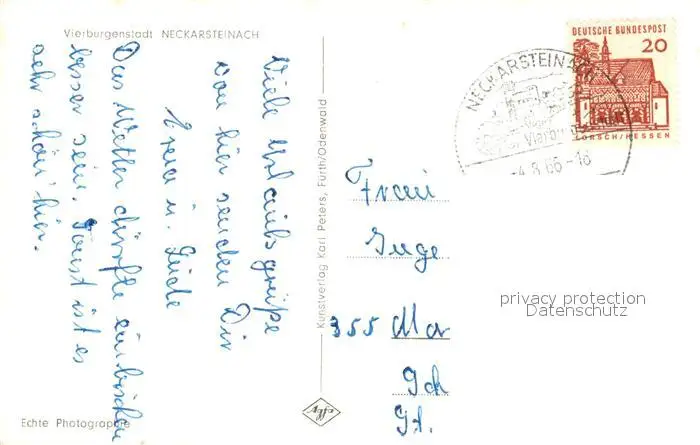 Vierburgenstadt NECKARSTEINACH
Viele Urlaubsgrüße
von hier senden Dir
Erena u. Lucie
Das Wetter dürfte ein bischen
besser sein. Sonst ist es
sehr schön hier.
Echte Photographie
Kunstverlag Karl Peters, Fürth/Odenwald
Agfa
DEUTSCHE BUNDESPOST
20
LORSCH/HESSEN
NECKARSTEINACH
-4.8.66-18
Frau
Inge
355 Mar
Gt.
privacy protection
Datenschutz